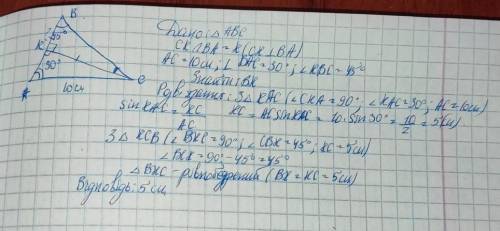 B
45°
K
30°
A
C
10см
Дано: △ ABC
CK∩BA = K (CK ⊥ BA)
AC = 10см; ∠ BAC = 30°; ∠ KBC = 45°
Знайти: BK
Розв'язання: З △ KAC (∠ CKA = 90°; ∠ KAC = 30°; AC = 10см)
sin KAC = KC/AC KC = AC sin KAC = 10 · sin 30° = 10/2 = 5 (см)
З △ KCB (∠ BKC = 90°; ∠ CBK = 45°; KC = 5см)
∠ BCK = 90° - 45° = 45°
△ BKC - рівнобедрений (BK = KC = 5см)
Відповідь: 5 см